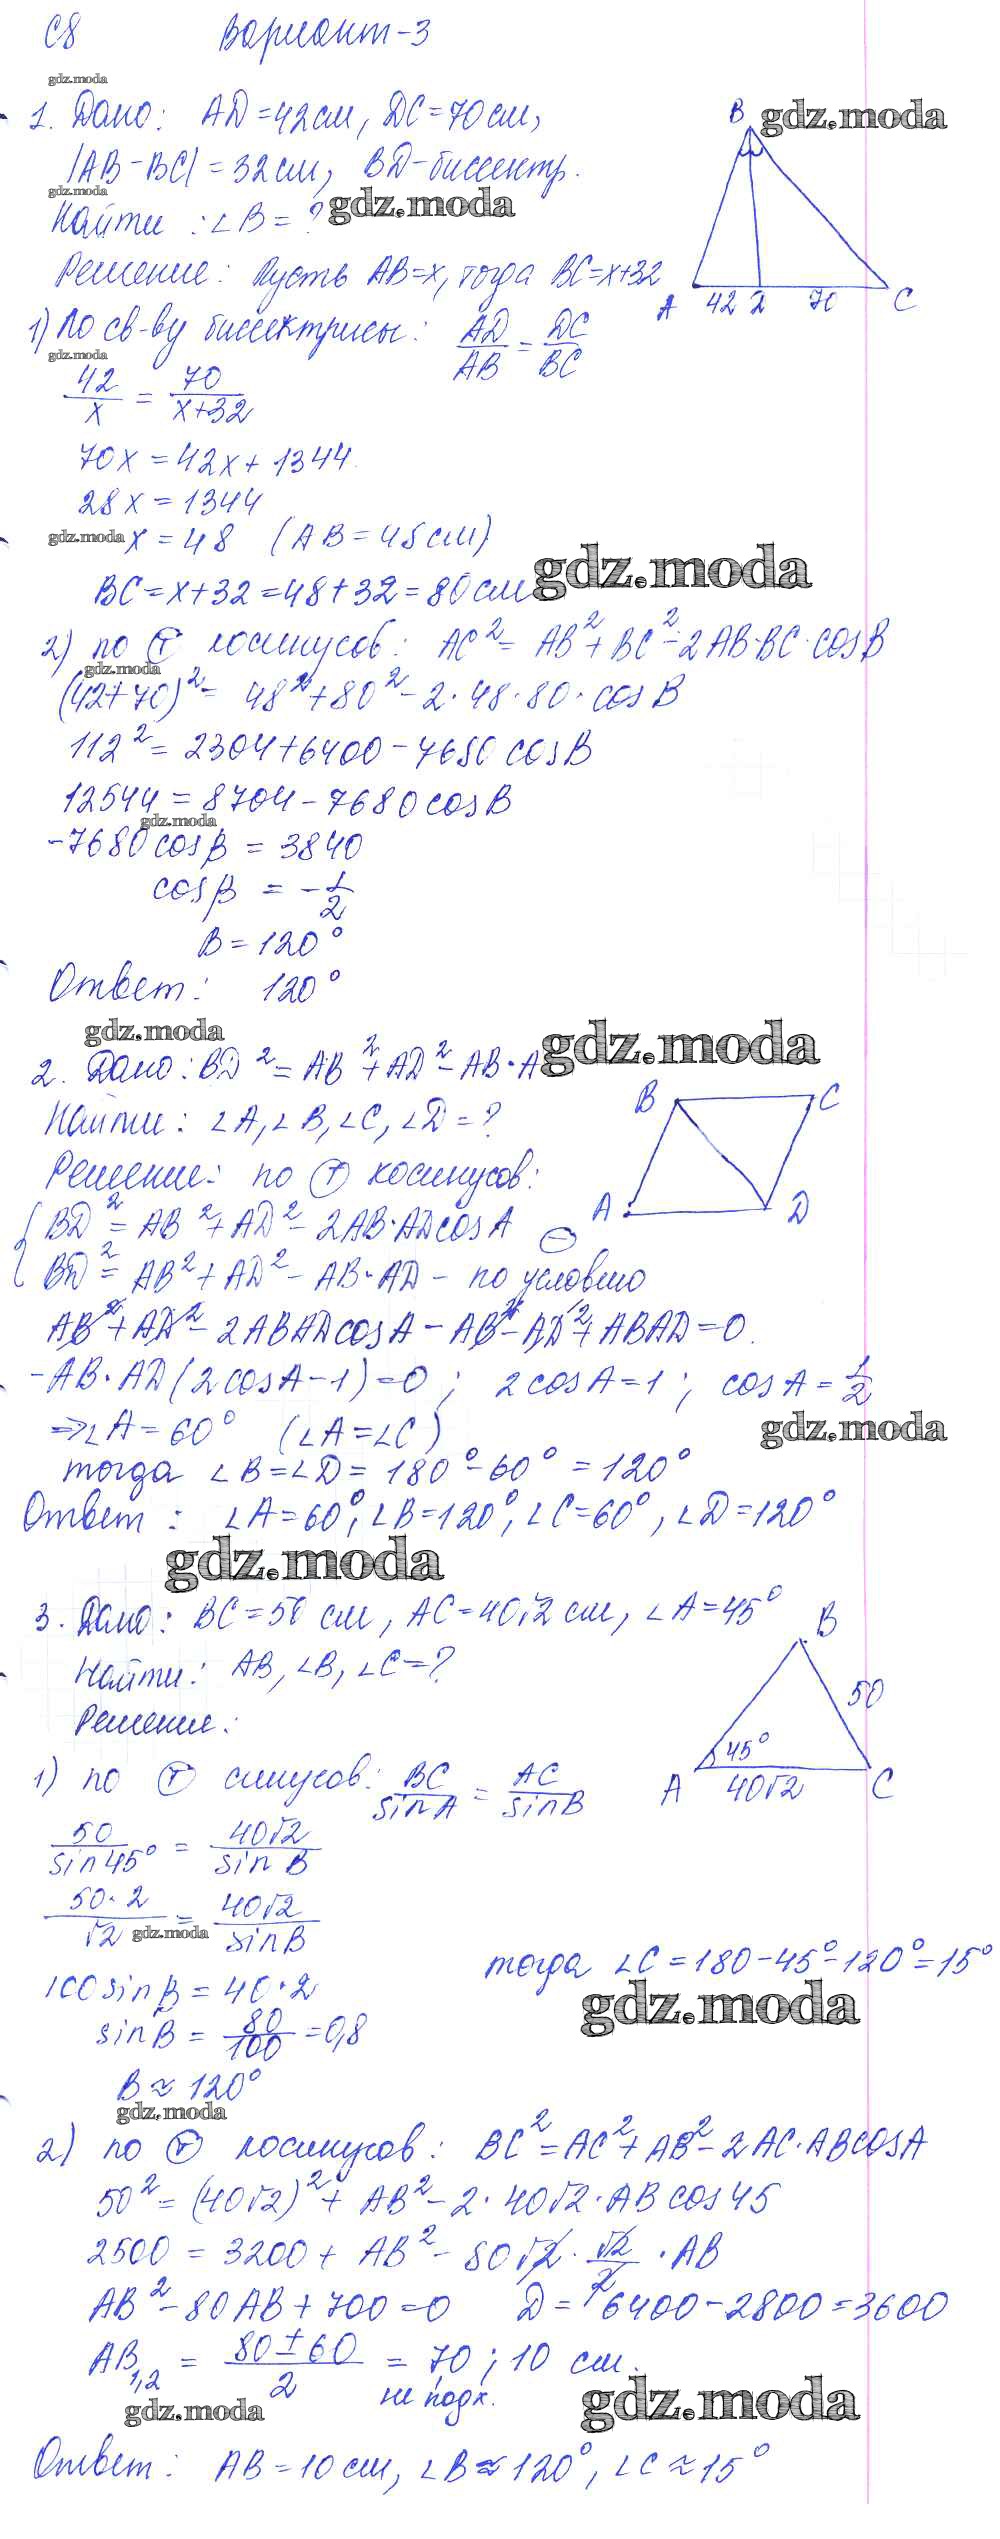 С8 Вариант-3
gdz.moda
1. Дано: AD=42см, DC=70см,
B gdz.moda
|AB-BC|=32см, BD-биссектр.
gdz.moda
Найти: ∠B=? gdz.moda
Решение: Пусть AB=x, тогда BC=x+32
A 42 D 70 C
1) По св-ву биссектрисы: AD/AB = DC/BC
gdz.moda
42/x = 70/(x+32)
70x=42x+1344
28x=1344
gdz.moda x=48 (AB=48см)
BC=x+32=48+32=80см gdz.moda
2) по Т косинусов: AC²=AB²+BC²-2AB·BC·cosB
gdz.moda
(42+70)²=48²+80²-2·48·80·cosB
112²=2304+6400-7680cosB
12544=8704-7680cosB
gdz.moda
-7680cosβ=3840
cosβ=-1/2
B=120°
Ответ: 120°
gdz.moda
2. Дано: BD²=AB²+AD²-AB·A gdz.moda
B C
Найти: ∠A, ∠B, ∠C, ∠D=?
Решение: по Т косинусов:
A D
{BD²=AB²+AD²-2AB·ADcosA
BD²=AB²+AD²-AB·AD - по условию
AB²+AD²-2ABADcosA-AB²-AD²+ABAD=0.
-AB·AD(2cosA-1)=0; 2cosA=1; cosA=1/2
⇒∠A=60° (∠A=∠C) gdz.moda
тогда ∠B=∠D=180°-60°=120°
Ответ: ∠A=60°, ∠B=120°, ∠C=60°, ∠D=120°
gdz.moda
3. Дано: BC=50 см, AC=40√2 см, ∠A=45°
B
Найти: AB, ∠B, ∠C=?
50
Решение:
45°
A 40√2 C
1) по Т синусов: BC/sinA = AC/sinB
50/sin45° = 40√2/sinB
50·2/√2 = 40√2/sinB
gdz.moda
тогда ∠C=180-45°-120°=15°
100sinB=40·2
gdz.moda
sinB=80/100=0,8
B≈120°
gdz.moda
2) по Т косинусов: BC²=AC²+AB²-2AC·ABcosA
50²=(40√2)²+AB²-2·40√2·ABcos45
2500=3200+AB²-80√2·√2/2·AB
AB²-80AB+700=0 D=6400-2800=3600
AB₁,₂=(80±60)/2=70; 10 см.
не подх.
gdz.moda gdz.moda
Ответ: AB=10см, ∠B≈120°, ∠C≈15°